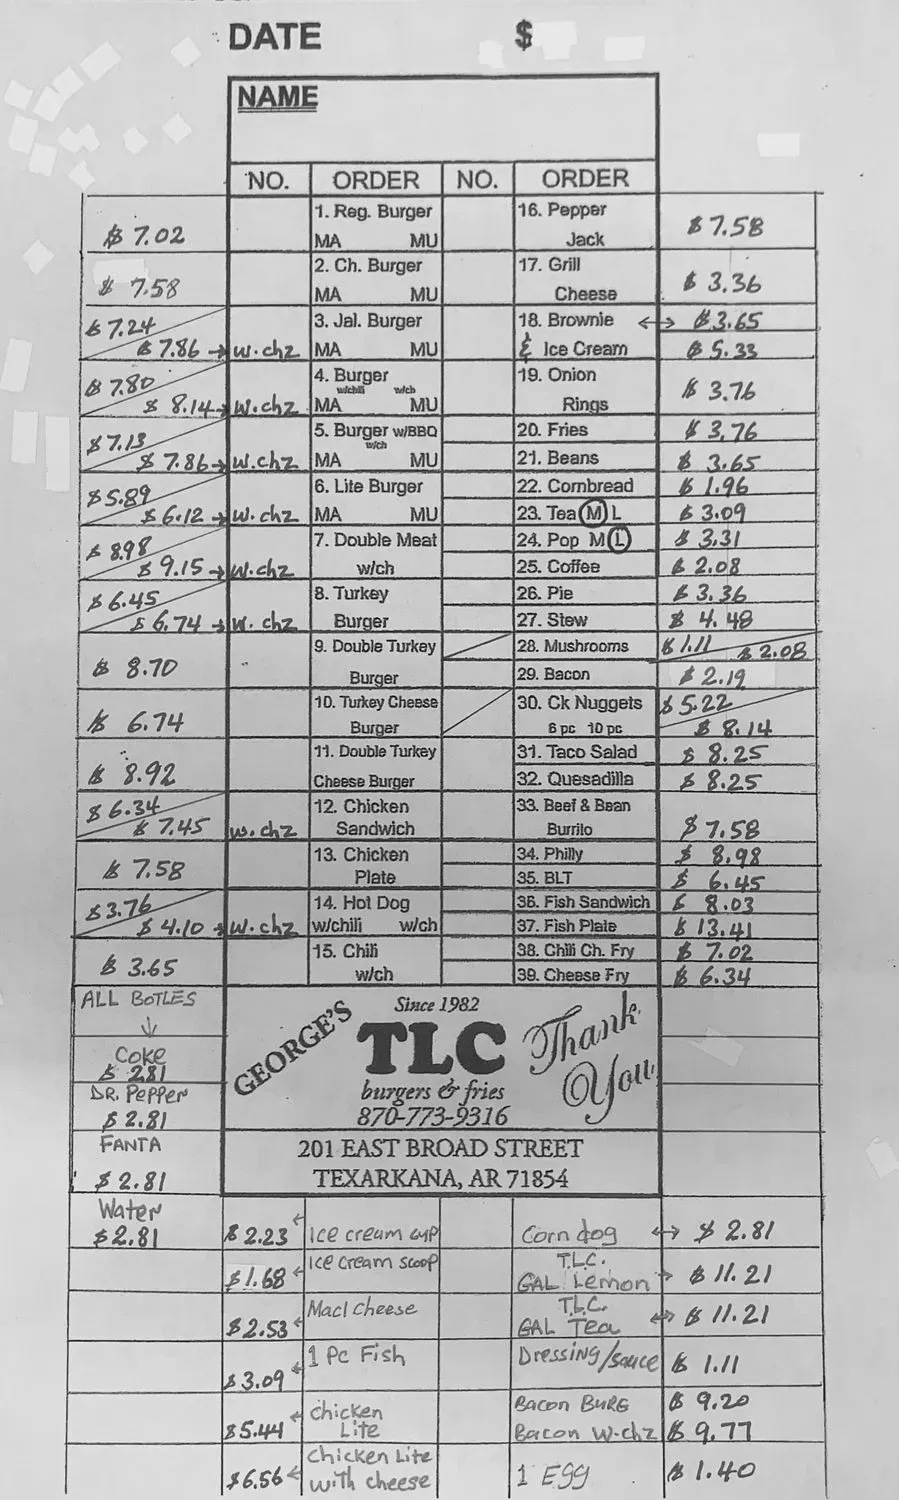 DATE $
NAME
NO. ORDER NO. ORDER
$ 7.02 1. Reg. Burger 16. Pepper $ 7.58
MA MU Jack
$ 7.58 2. Ch. Burger 17. Grill $ 3.36
MA MU Cheese
$ 7.24 3. Jal. Burger 18. Brownie ↔ $ 3.65
$ 7.86 → w.chz MA MU & Ice Cream $ 5.33
$ 7.80 4. Burger 19. Onion $ 3.76
w/chili w/ch
$ 8.14 → w.chz MA MU Rings
$ 7.13 5. Burger w/BBQ 20. Fries $ 3.76
w/ch
$ 7.86 → w.chz MA MU 21. Beans $ 3.65
$ 5.89 6. Lite Burger 22. Cornbread $ 1.96
$ 6.12 → w.chz MA MU 23. Tea M L $ 3.09
$ 8.98 7. Double Meat 24. Pop M L $ 3.31
$ 9.15 → w.chz w/ch 25. Coffee $ 2.08
$ 6.45 8. Turkey 26. Pie $ 3.36
$ 6.74 → w. chz Burger 27. Stew $ 4.48
$ 8.70 9. Double Turkey 28. Mushrooms $ 1.11 $ 2.08
Burger 29. Bacon $ 2.19
$ 6.74 10. Turkey Cheese 30. Ck Nuggets $ 5.22
Burger 6 pc 10 pc $ 8.14
$ 8.92 11. Double Turkey 31. Taco Salad $ 8.25
Cheese Burger 32. Quesadilla $ 8.25
$ 6.34 12. Chicken 33. Beef & Bean
$ 7.45 w.chz Sandwich Burrito $ 7.58
$ 7.58 13. Chicken 34. Philly $ 8.98
Plate 35. BLT $ 6.45
$ 3.76 14. Hot Dog 36. Fish Sandwich $ 8.03
$ 4.10 → w.chz w/chili w/ch 37. Fish Plate $ 13.41
$ 3.65 15. Chili 38. Chili Ch. Fry $ 7.02
w/ch 39. Cheese Fry $ 6.34
ALL BOTLES
↓
Coke
$ 2.81
DR. PePPer
$ 2.81
FANTA
$ 2.81
Water
$ 2.81
GEORGE'S
Since 1982
TLC
burgers & fries
870-773-9316
Thank
You
201 EAST BROAD STREET
TEXARKANA, AR 71854
$ 2.23 ← Ice cream cup Corn dog ↔ $ 2.81
$ 1.68 ← Ice cream scoop T.L.C.
GAL Lemon → $ 11.21
$ 2.53 ← Mac/cheese T.L.C.
GAL Tea ↔ $ 11.21
$ 3.09 ← 1 Pc Fish Dressing/sauce $ 1.11
$ 5.44 ← Chicken Bacon BURG $ 9.20
Lite Bacon W.chz $ 9.77
$ 6.56 ← Chicken Lite 1 EGG $ 1.40
with cheese